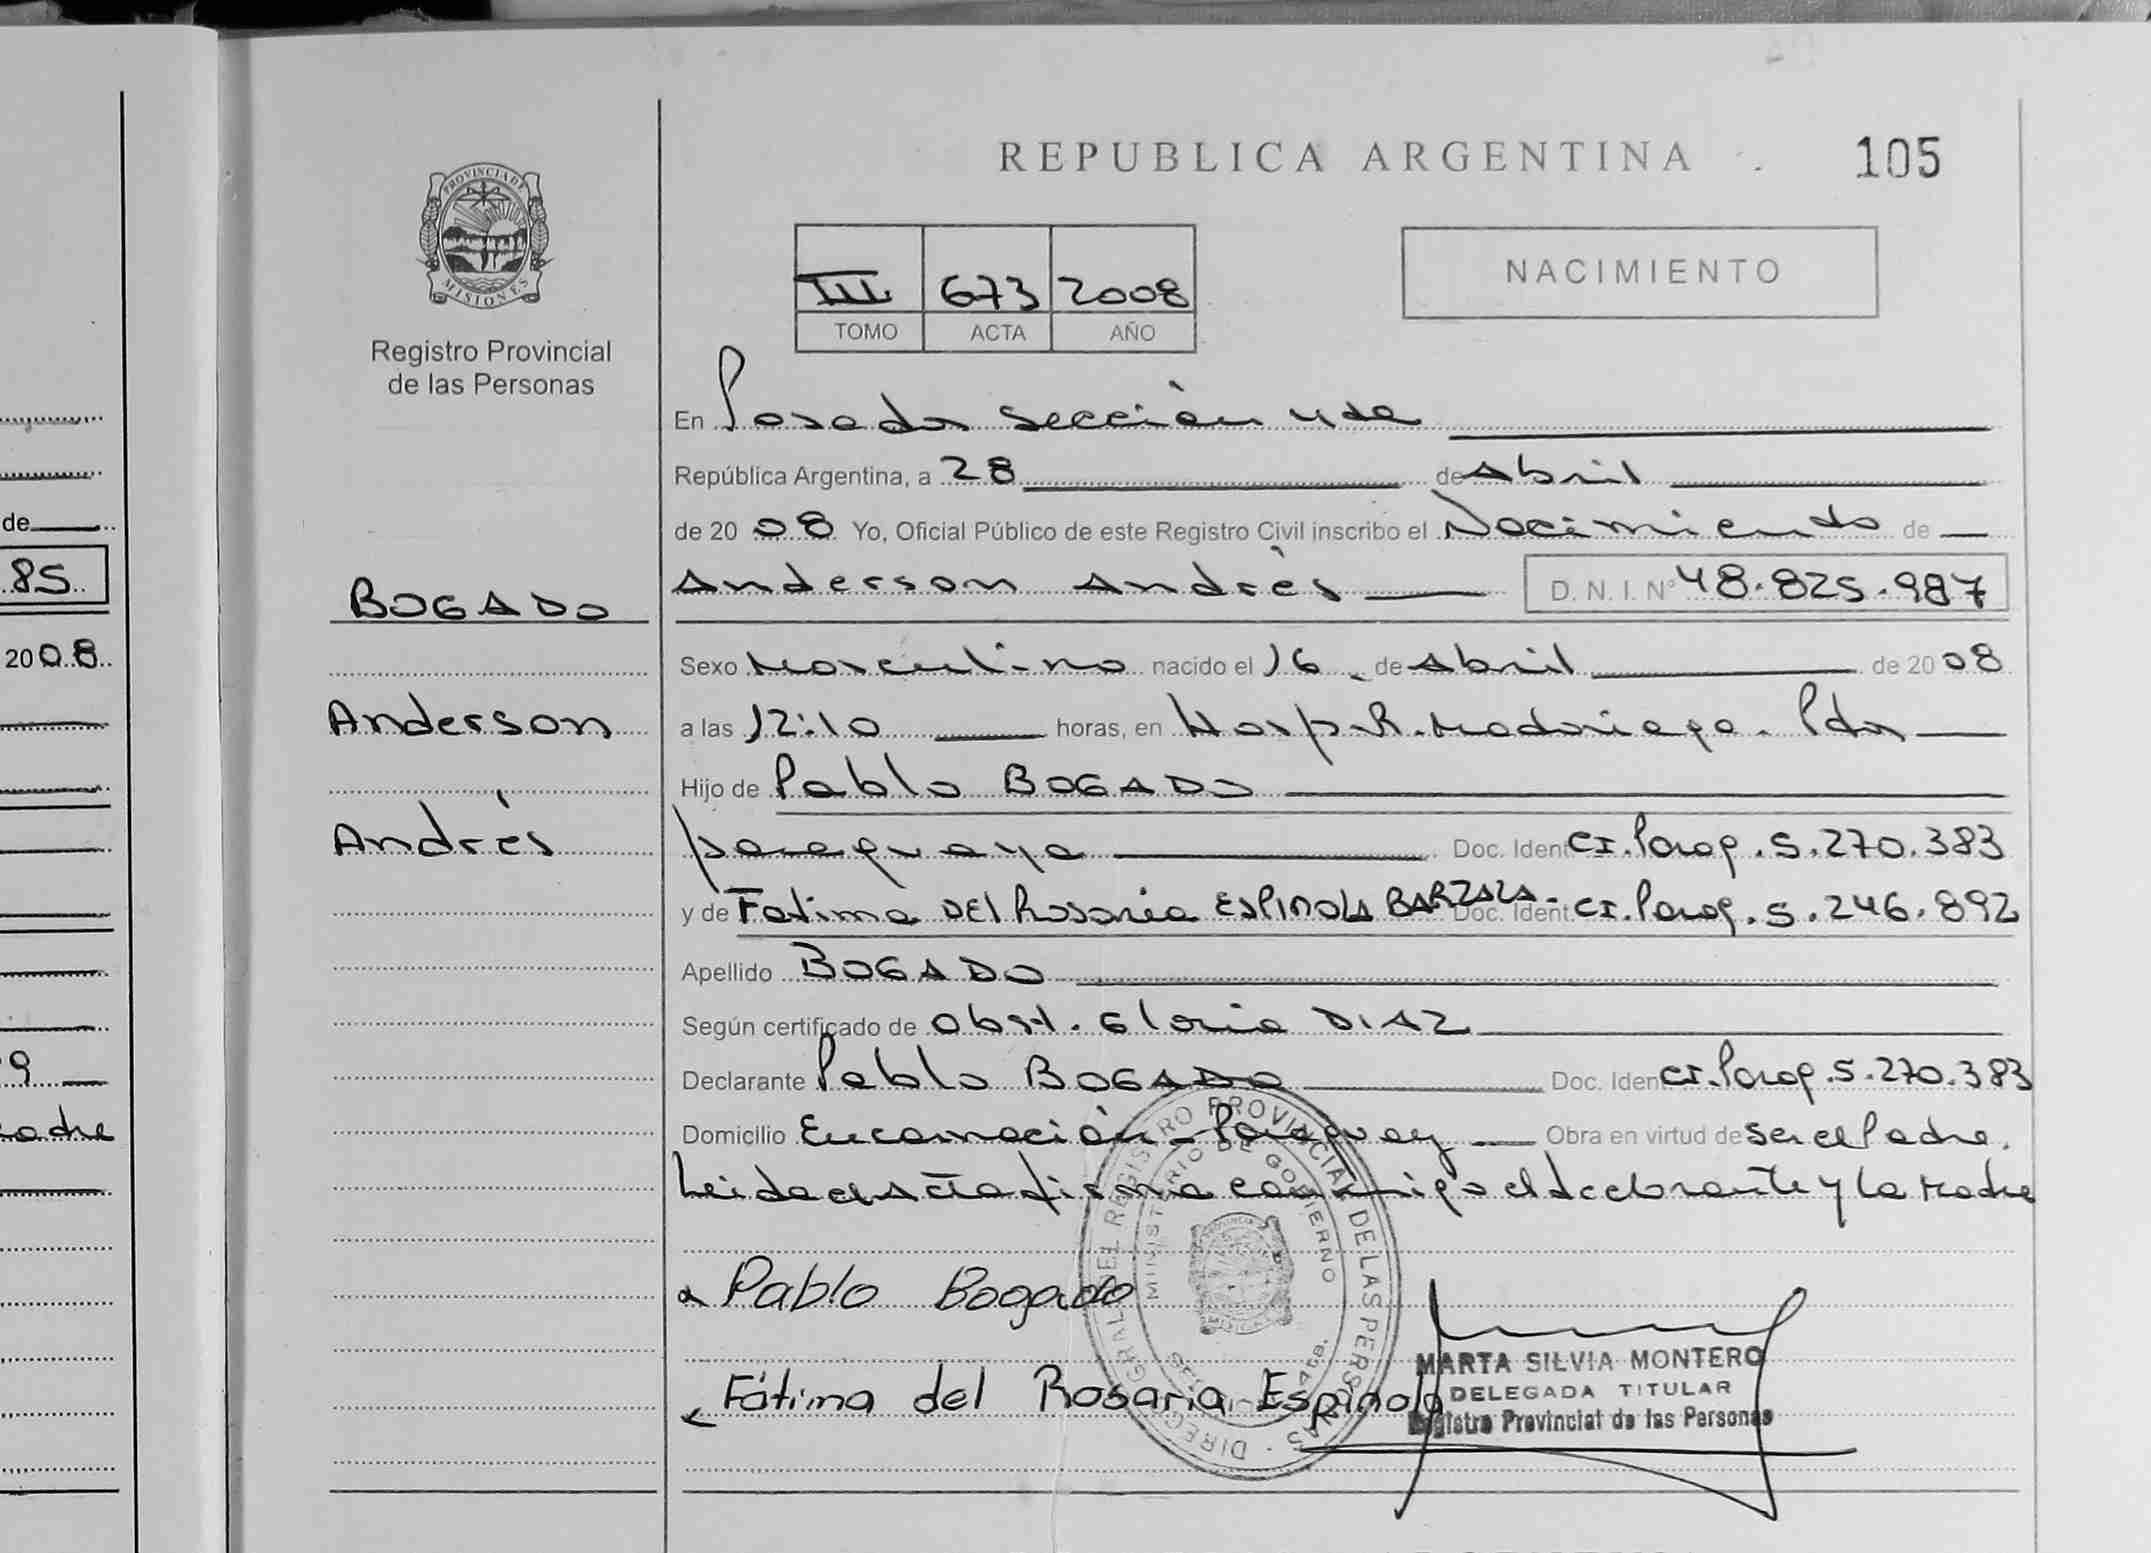 de
85
2008
9
adre
PROVINCIA DE
MISIONES
Registro Provincial
de las Personas
BOGADO
Anderson
Andrés
REPUBLICA ARGENTINA 105
III 673 2008
TOMO ACTA AÑO
NACIMIENTO
En Posadas Sección 4ta
República Argentina, a 28 de Abril
de 20 08 Yo, Oficial Público de este Registro Civil inscribo el Nacimiento de
Anderson Andrés D. N. I. N° 48.825.987
Sexo Masculino nacido el 16 de Abril de 20 08
a las 12:10 horas, en Hosp. R. Madariaga. Pdas
Hijo de Pablo BOGADO
paraguaya Doc. Ident CI. Parag. 5.270.383
y de Fatima DEl Rosario ESPINOLA BARZALA - Doc. Ident. CI. Parag. 5.246.892
Apellido BOGADO
Según certificado de Obst. Gloria DIAZ
Declarante Pablo BOGADO Doc. Iden CI. Parag. 5.270.383
Domicilio Encarnación - Paraguay Obra en virtud de ser el Padre.
Leida el Acta firma conmigo el declarante y la Madre
Pablo Bogado
Fátima del Rosaria Espinola
DIREC. GRAL. DEL REGISTRO PROVINCIAL DE LAS PERSONAS
MINISTERIO DE GOBIERNO
MARTA SILVIA MONTERO
DELEGADA TITULAR
Registro Provincial de las Personas